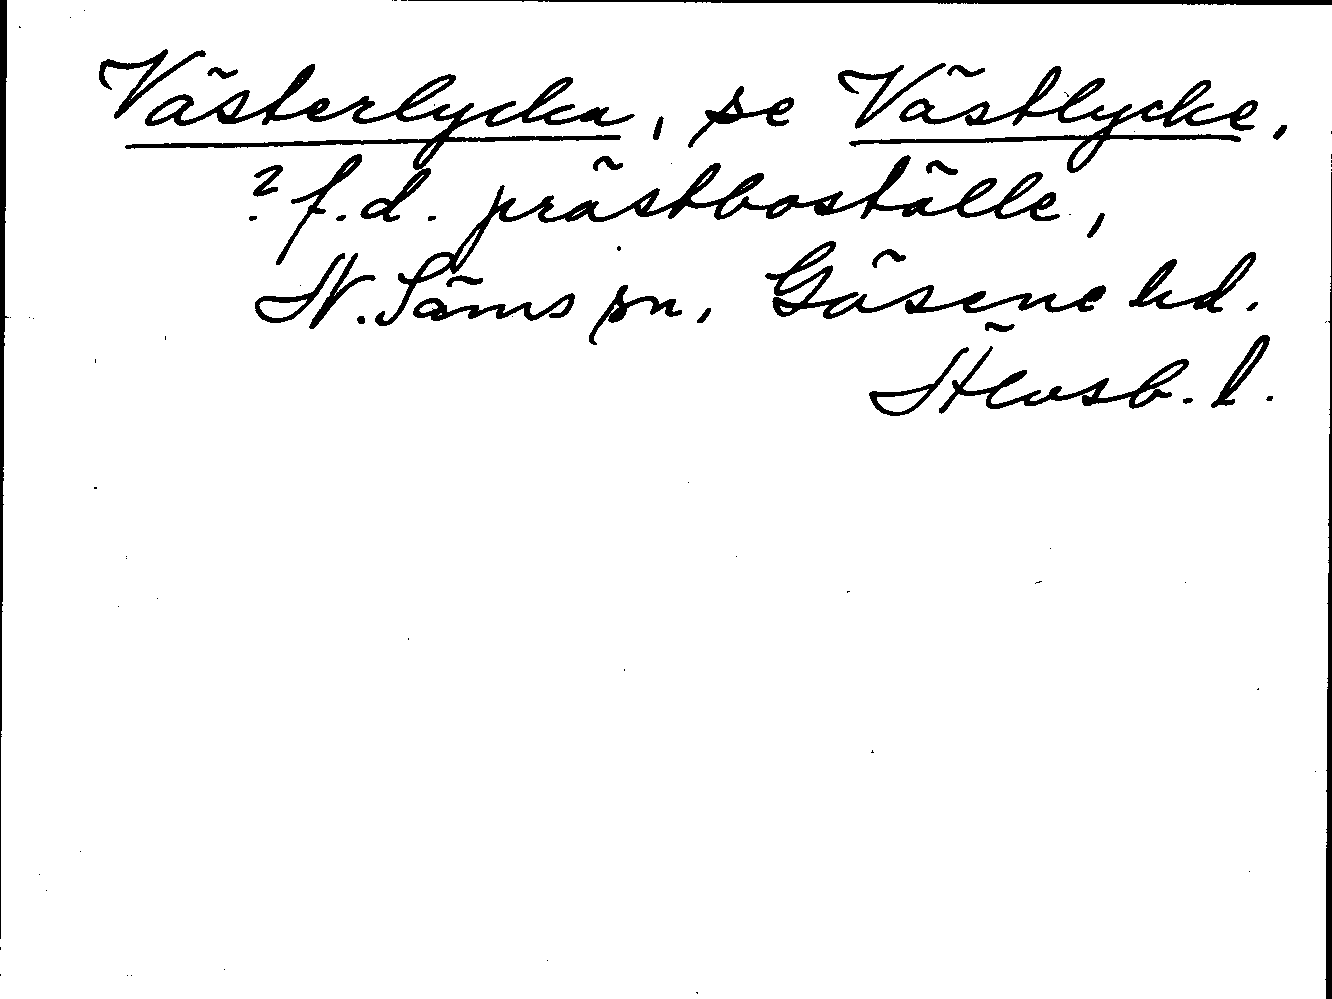 Västerlycka, se Västlycke,
? f.d. prästboställe,
N. Säms sn, Gäsene hd.
Älvsb. l.